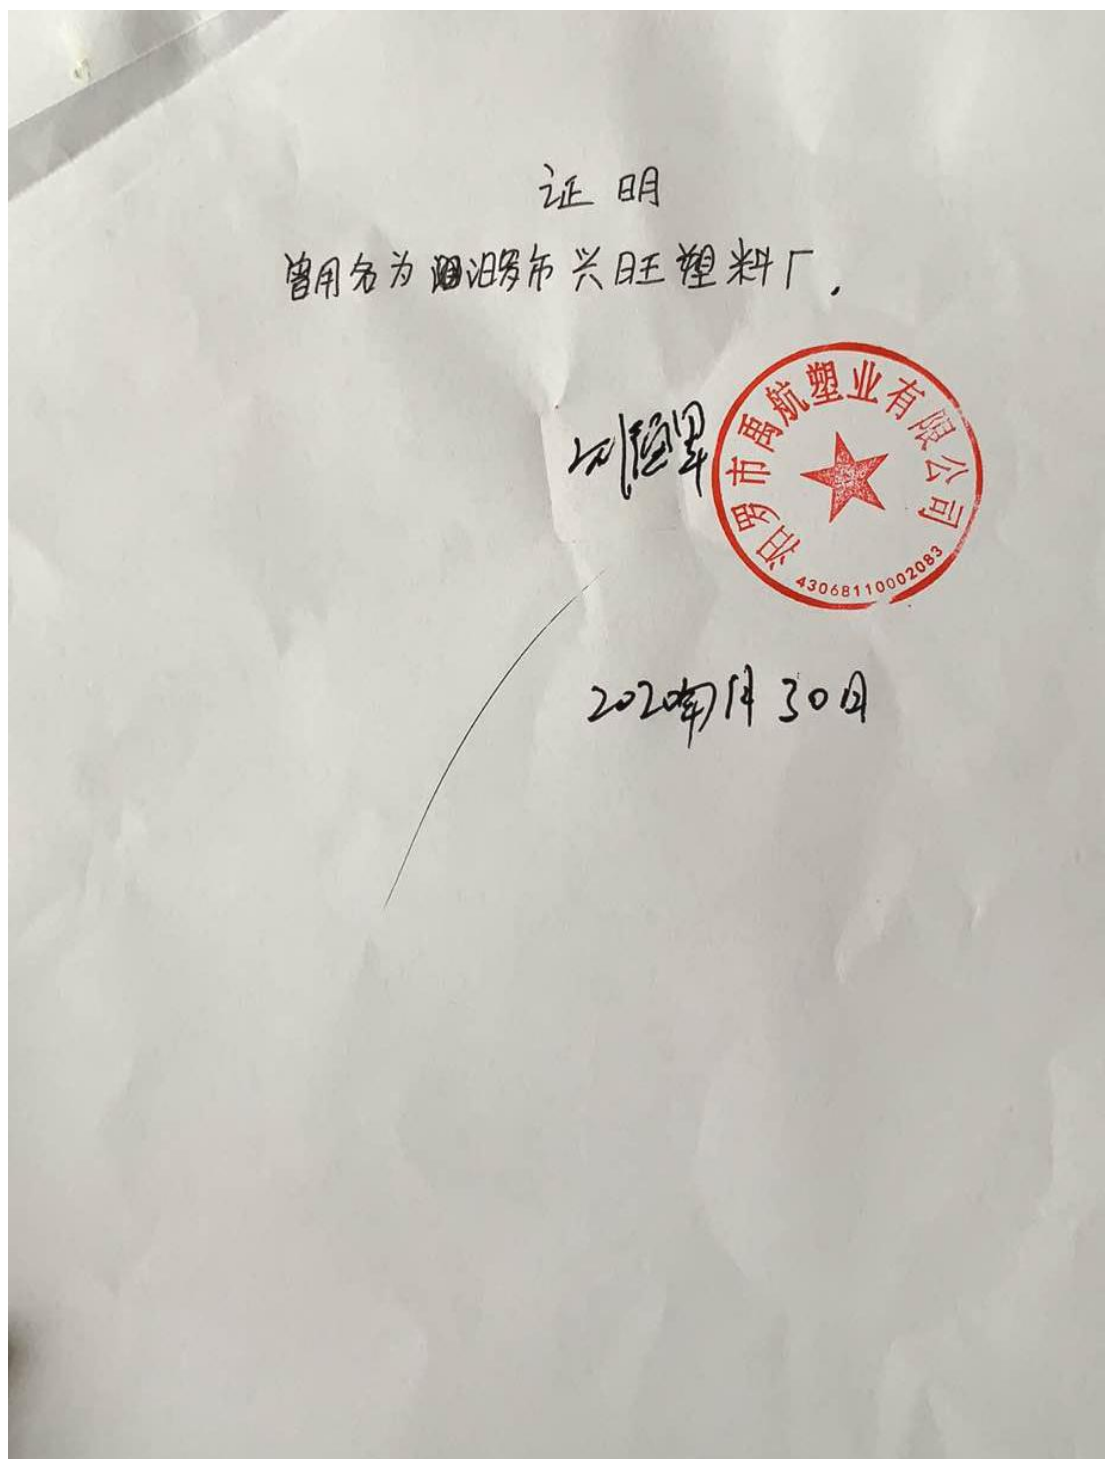 证明
曾用名为汨罗市兴旺塑料厂.
汨罗市禹航塑业有限公司
43068110002083
2020年7月30日